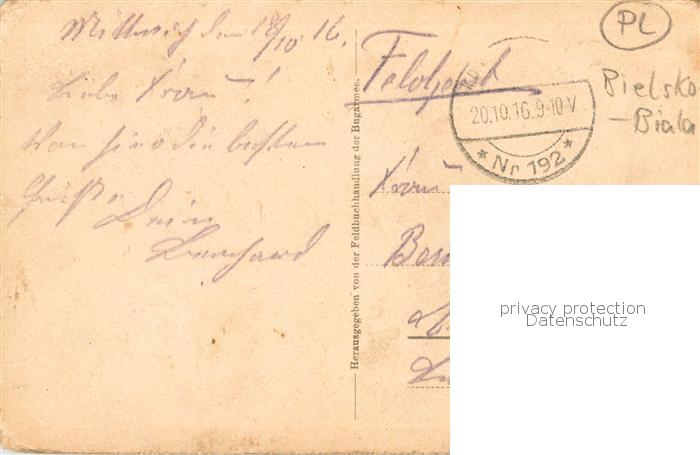 Mittwoch den 18/10 16.
Liebe Frau!
Von hier die besten
Grüße Dein
Bernhard
Herausgegeben von der Feldbuchhandlung der Bugarmee.
Feldpost
20.10.16. 9-10 V
* Nr 192 *
PL
Bielsko
-Biala
Frau
privacy protection
Datenschutz